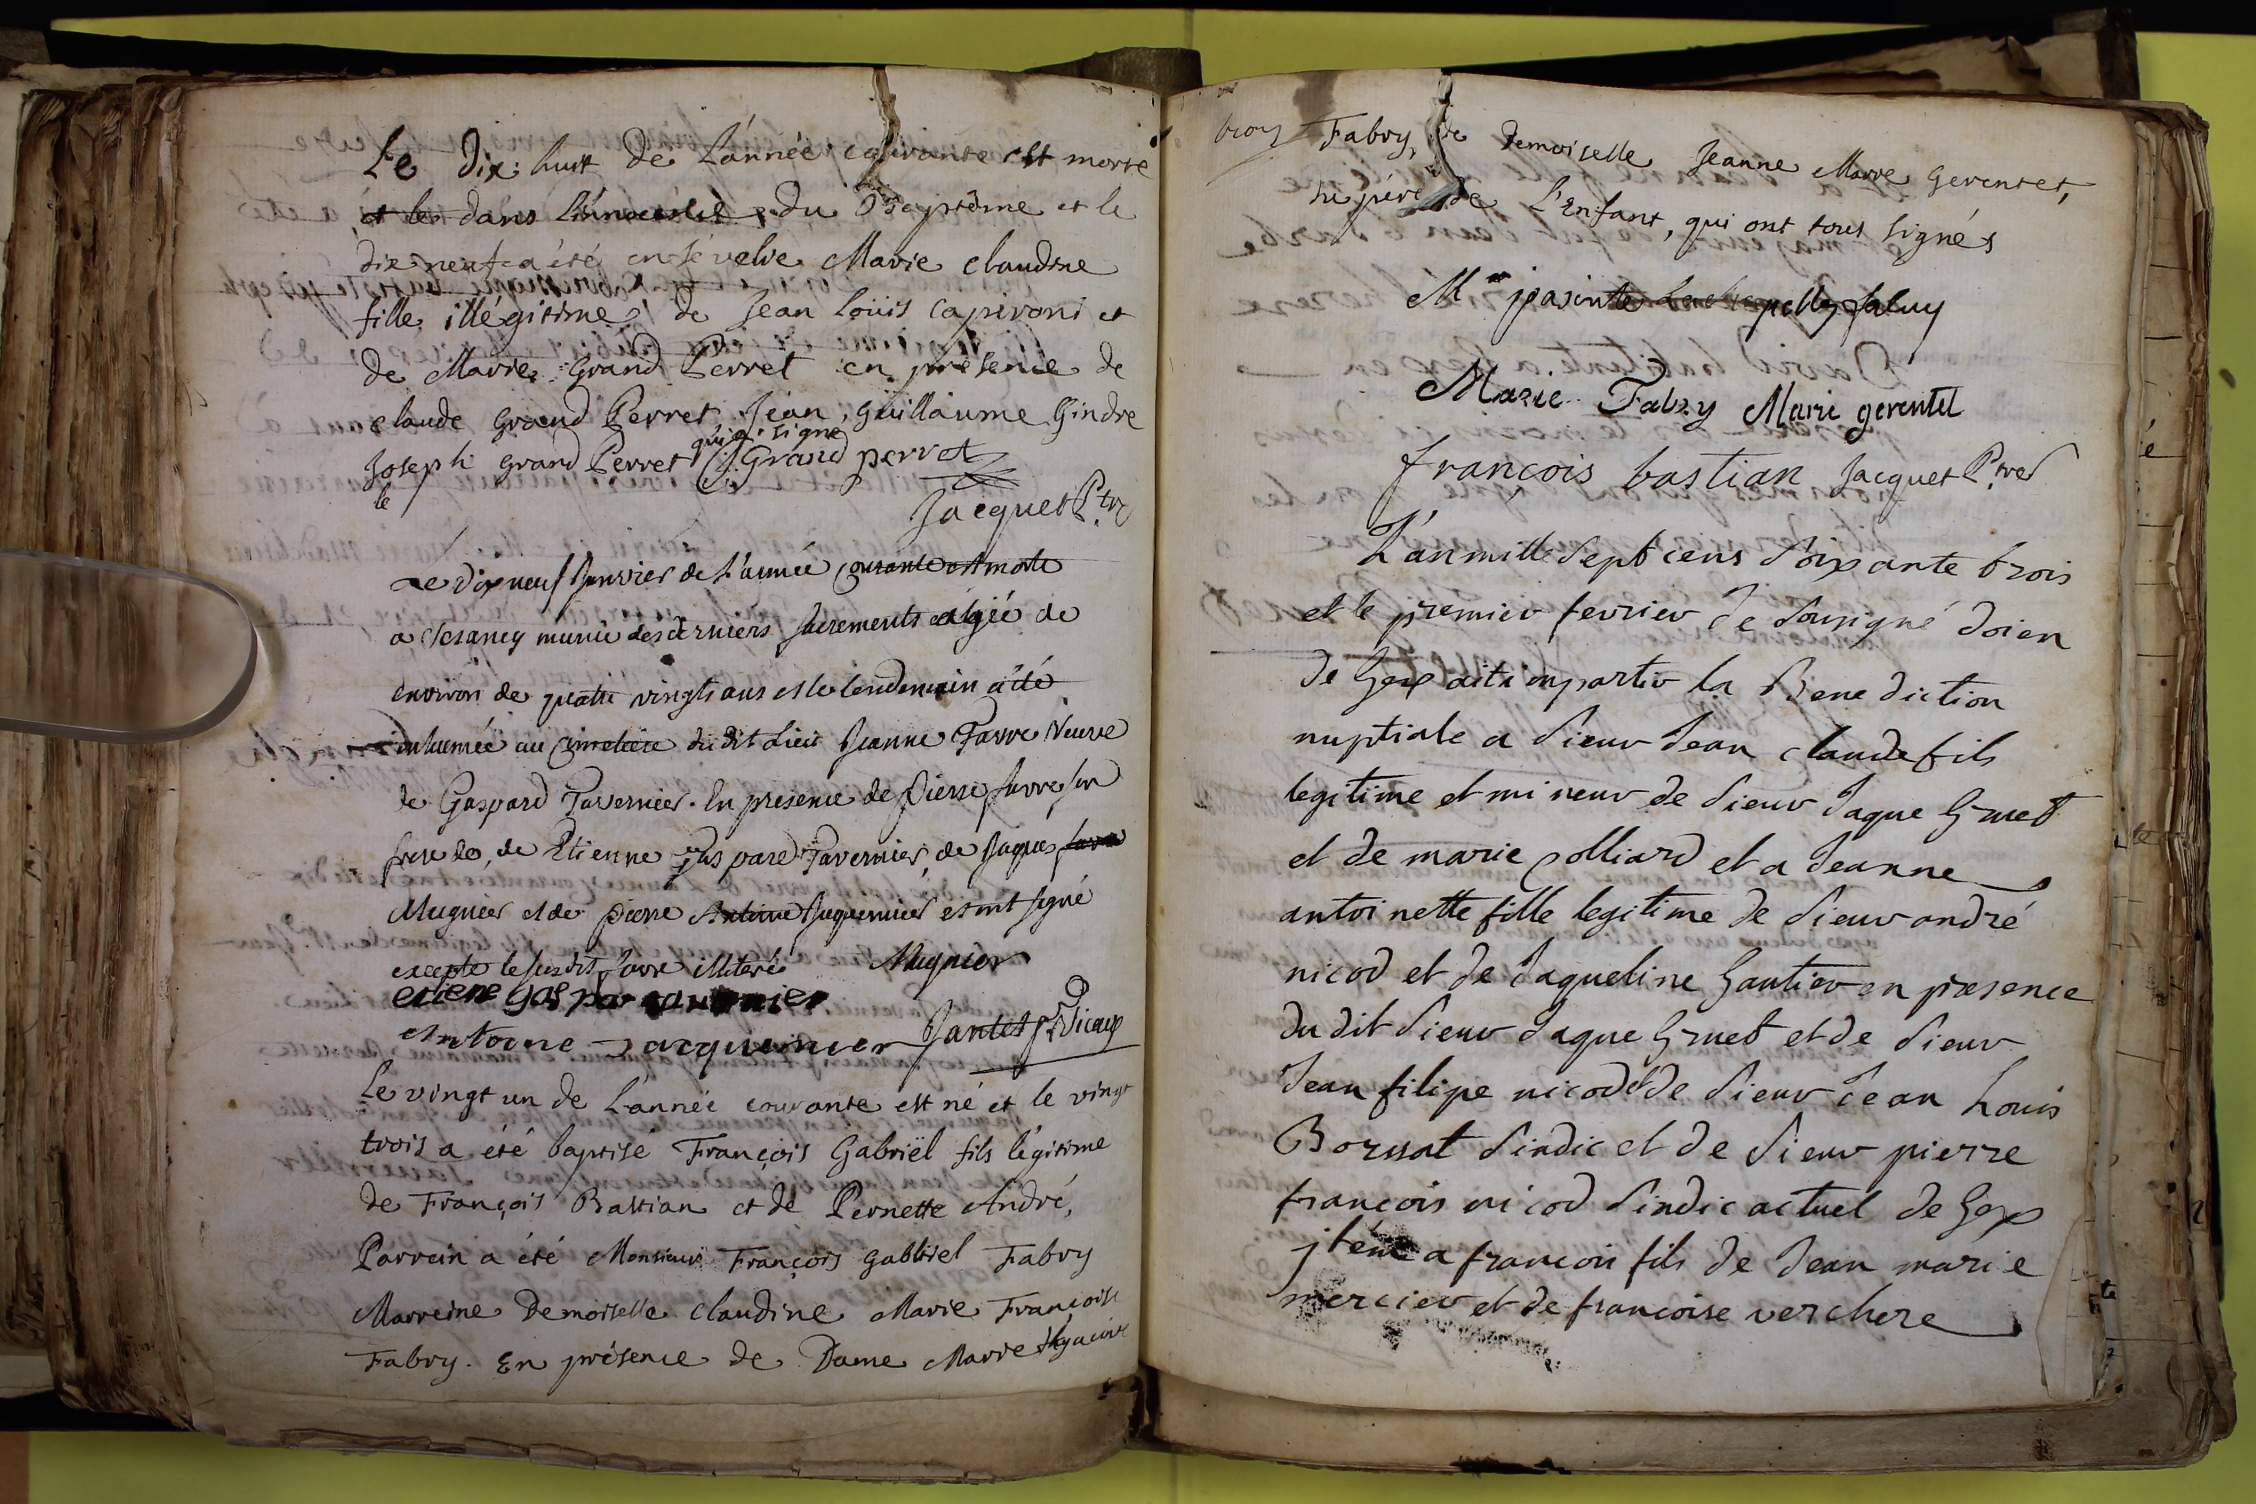 Le dix huit de L'année courante est morte
et les dans L'innocence du Baptême et le
dix neuf a été ensévelie Marie Claudine
fille illégitime de Jean Loüis Capironi et
de Marie Grand Perret en présence de
Claude Grand Perret Jean Guillaume Gindre
Joseph Grand Perret qui a signé J. Grand perrot
le
Jacquet Ptre
Le dix neuf Janvier de L'année courante est morte
a Cesancy munie des derniers sacrements agée de
environ de quatre vingts ans et le lendemain a été
inhumée au cimetiere du dit Lieu Jeanne Favre Veuve
de Gaspard Tavernier. En presence de Pierre favre son
frere de Etienne Gaspard Tavernier, de Jaques favre
Mugnier et de pierre Antoine Juquemier et ont signé
excepté le susdit favre illiteré Mugnier
etiene gaspar
antoine Jacquemier Jantet Vicaire
Le vingt un de L'année courante est né et le vingt
trois a été baptisé François Gabriël fils légitime
de François Bastian et de Pernette André,
Parrein a été Monsieur François Gabriel Fabry
Marreine Demoiselle Claudine Marie Françoise
Fabry. En présence de Dame Marie Hyacinte
Fabry, de Demoiselle Jeanne Marie Gerentet,
du père de L'Enfant, qui ont tous signés
fabry
Marie Fabry Marie gerentet
françois bastian Jacquet Ptre
L'an mille sept cens soixante trois
et le premier fevrier Je sousigné doien
de Gex ai départir la Benediction
nuptiale a sieur Jean claude fils
legitime et mineur de sieur Jaque Gruet
et de marieolliard et a Jeanne
antoinette fille legitime de sieur andré
nicod et de Jaqueline Gautier en presence
du dit sieur Jaque Gruet et de sieur
Jean filipe nicod et de sieur Jean Louis
Borssat sindic et de sieur pierre
françois nicod sindic actuel de Gex
jtem a françois fils de Jean marie
mercier et de francoise verchere